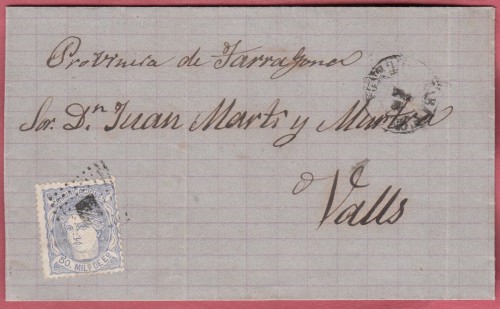 Provincia de Tarragona
Sor. Dn. Juan Marti y Martra
Valls
50. MILS DE Eo